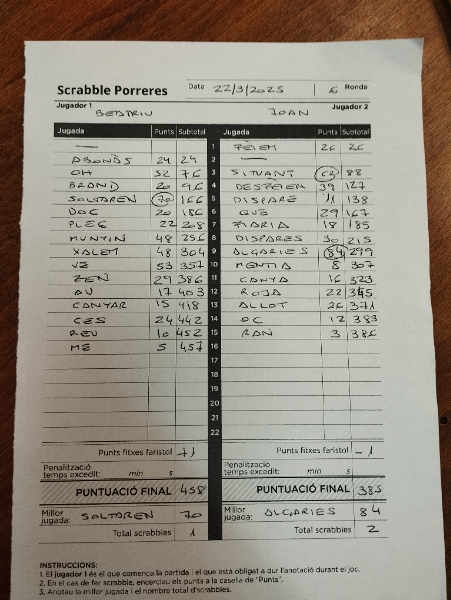 Scrabble Porreres Data 22/3/2025 6 Ronda
Jugador 1 BEATRIU JOAN Jugador 2
Jugada Punts Subtotal Jugada Punts Subtotal
— 1 FEIEM 26 26
ABONÀS 24 24 2 —
OH 52 76 3 SITUANT 62 88
BRAND 20 96 4 DESFEIEN 39 127
SALTAREN 70 166 5 DISPARÉ 11 138
DOC 20 186 6 QUE 29 167
PLEG 22 208 7 FIARIA 18 185
MUNYIN 48 256 8 DISPARES 30 215
XALEM 48 304 9 ALGARIES 84 299
VE 53 357 10 MENTIA 8 307
ZEN 29 386 11 CANYA 16 323
AU 17 403 12 ROJA 22 345
CANYAR 15 418 13 ALLOT 26 371
CES 24 442 14 OC 12 383
REU 10 452 15 RAN 3 386
ME 5 457 16
17
18
19
20
21
22
Punts fitxes faristol +1 Punts fitxes faristol -1
Penalització temps excedit: min s Penalització temps excedit: min s
PUNTUACIÓ FINAL 458 PUNTUACIÓ FINAL 385
Millor jugada: SALTAREN 70 Millor jugada: ALGARIES 84
Total scrabbles 1 Total scrabbles 2
INSTRUCCIONS:
1. El jugador 1 és el que comença la partida i el que està obligat a dur l'anotació durant el joc.
2. En el cas de fer scrabble, encerclau els punts a la casella de "Punts".
3. Anotau la millor jugada i el nombre total d'scrabbles.